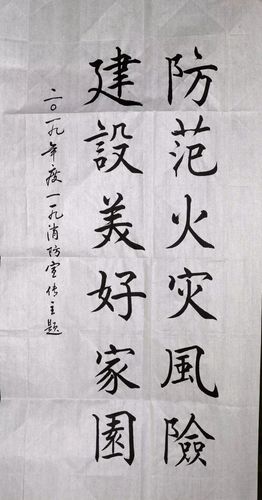 防范火灾風險
建設美好家園
二〇一九年度一一九消防宣传主题